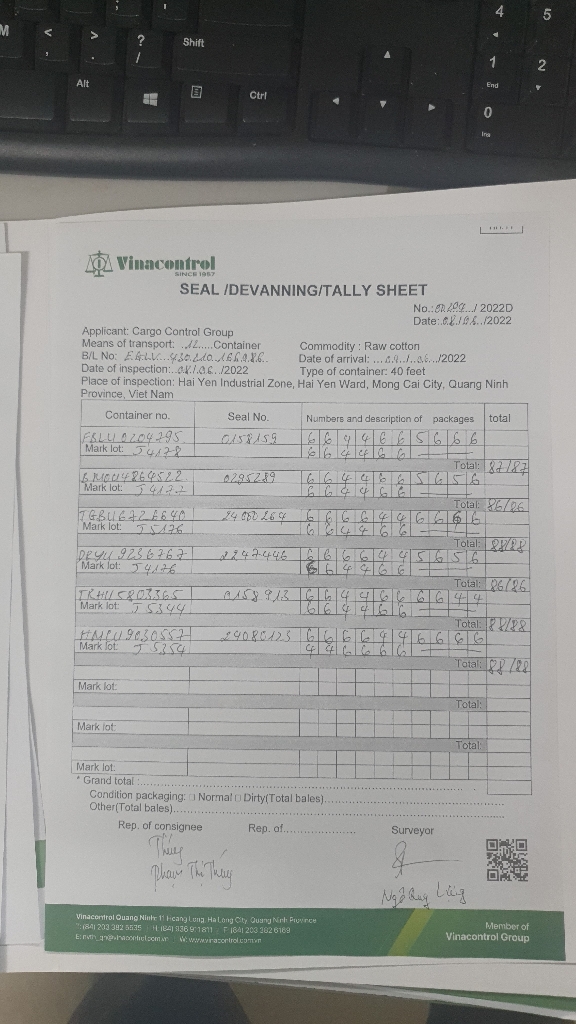 M < , > . ? / Shift
Alt Ctrl
4 5
1 End 2
0 Ins
Vinacontrol
SINCE 1957
SEAL /DEVANNING/TALLY SHEET
No.: /2022D
Date: 08/06/2022
Applicant: Cargo Control Group
Means of transport: 12 Container Commodity : Raw cotton
B/L No: EGLV Date of arrival: /06/2022
Date of inspection: 08/06/2022 Type of container: 40 feet
Place of inspection: Hai Yen Industrial Zone, Hai Yen Ward, Mong Cai City, Quang Ninh
Province, Viet Nam
Container no. Seal No. Numbers and description of packages total
0158159 6 6 4 4 6 6 5 6 6 6
Mark lot: J4178 6 6 4 4 6 6
Total: 87/87
0295289 6 6 4 4 6 6 5 6 5 6
Mark lot: J4177 6 6 4 4 6 6
Total: 86/86
6 6 6 6 4 4 6 6 6 6
Mark lot: J5176 6 6 4 4 6 6
Total: 88/88
2247446 6 6 6 6 4 4 5 6 5 6
Mark lot: J4176 6 6 4 4 6 6
Total: 86/86
TRHU5803365 0158913 6 6 4 4 6 6 6 6 4 4
Mark lot: J5344 6 6 4 4 6 6
Total: 88/88
HMCU9030557 24080123 6 6 6 6 4 4 6 6 6 6
Mark lot: J5354 4 4 6 6 6 6
Total: 88/88
Mark lot:
Total:
Mark lot:
Total:
Mark lot:
* Grand total :
Condition packaging: □ Normal □ Dirty(Total bales)
Other(Total bales)
Rep. of consignee Rep. of Surveyor
Thúy
Phạm Thị Thúy
Vinacontrol Quang Ninh: 11 Hoang Long, Ha Long City, Quang Ninh Province
Member of
Vinacontrol Group
T: (84) 203 382 5535 H: (84) 936 911 811 F: (84) 203 382 6169
W: www.vinacontrol.com.vn